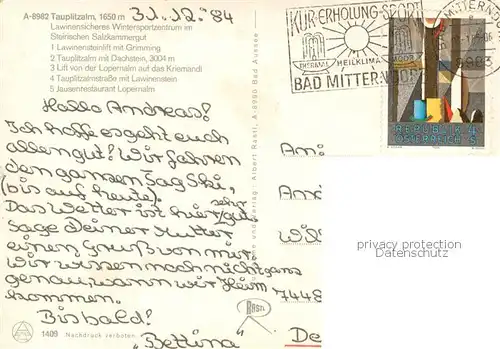 A-8982 Tauplitzalm, 1650 m
31.12.84
Lawinensicheres Wintersportzentrum im
Steirischen Salzkammergut
1 Lawinensteinlift mit Grimming
2 Tauplitzalm mit Dachstein, 3004 m
3 Lift von der Lopernalm auf das Kriemandl
4 Tauplitzalmstraße mit Lawinenstein
5 Jausenrestaurant Lopernalm
Hallo Andreas!
Ich hoffe es geht euch
allen gut! Wir fahren
den ganzen Tag Ski,
(bis auf heute).
Das Wetter ist hier sehr gut
sage Deiner Mutter
einen Gruß von mir.
Wir wissen noch nicht ganz
genau, wann wir Heim
kommen.
Bis bald!
Bettina
1409 Nachdruck verboten
Albert Rastl, A-8990 Bad Aussee
Rastl
KUR-ERHOLUNG-SPORT
THERMAL
HEILKLIMA
BAD MITTERNDORF
MITTERN
8983
REPUBLIK
ÖSTERREICH
S 4
An
An
Wil
7448
De
privacy protection